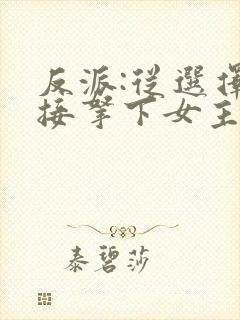 反派:從選擇
接拏下女主
泰碧莎